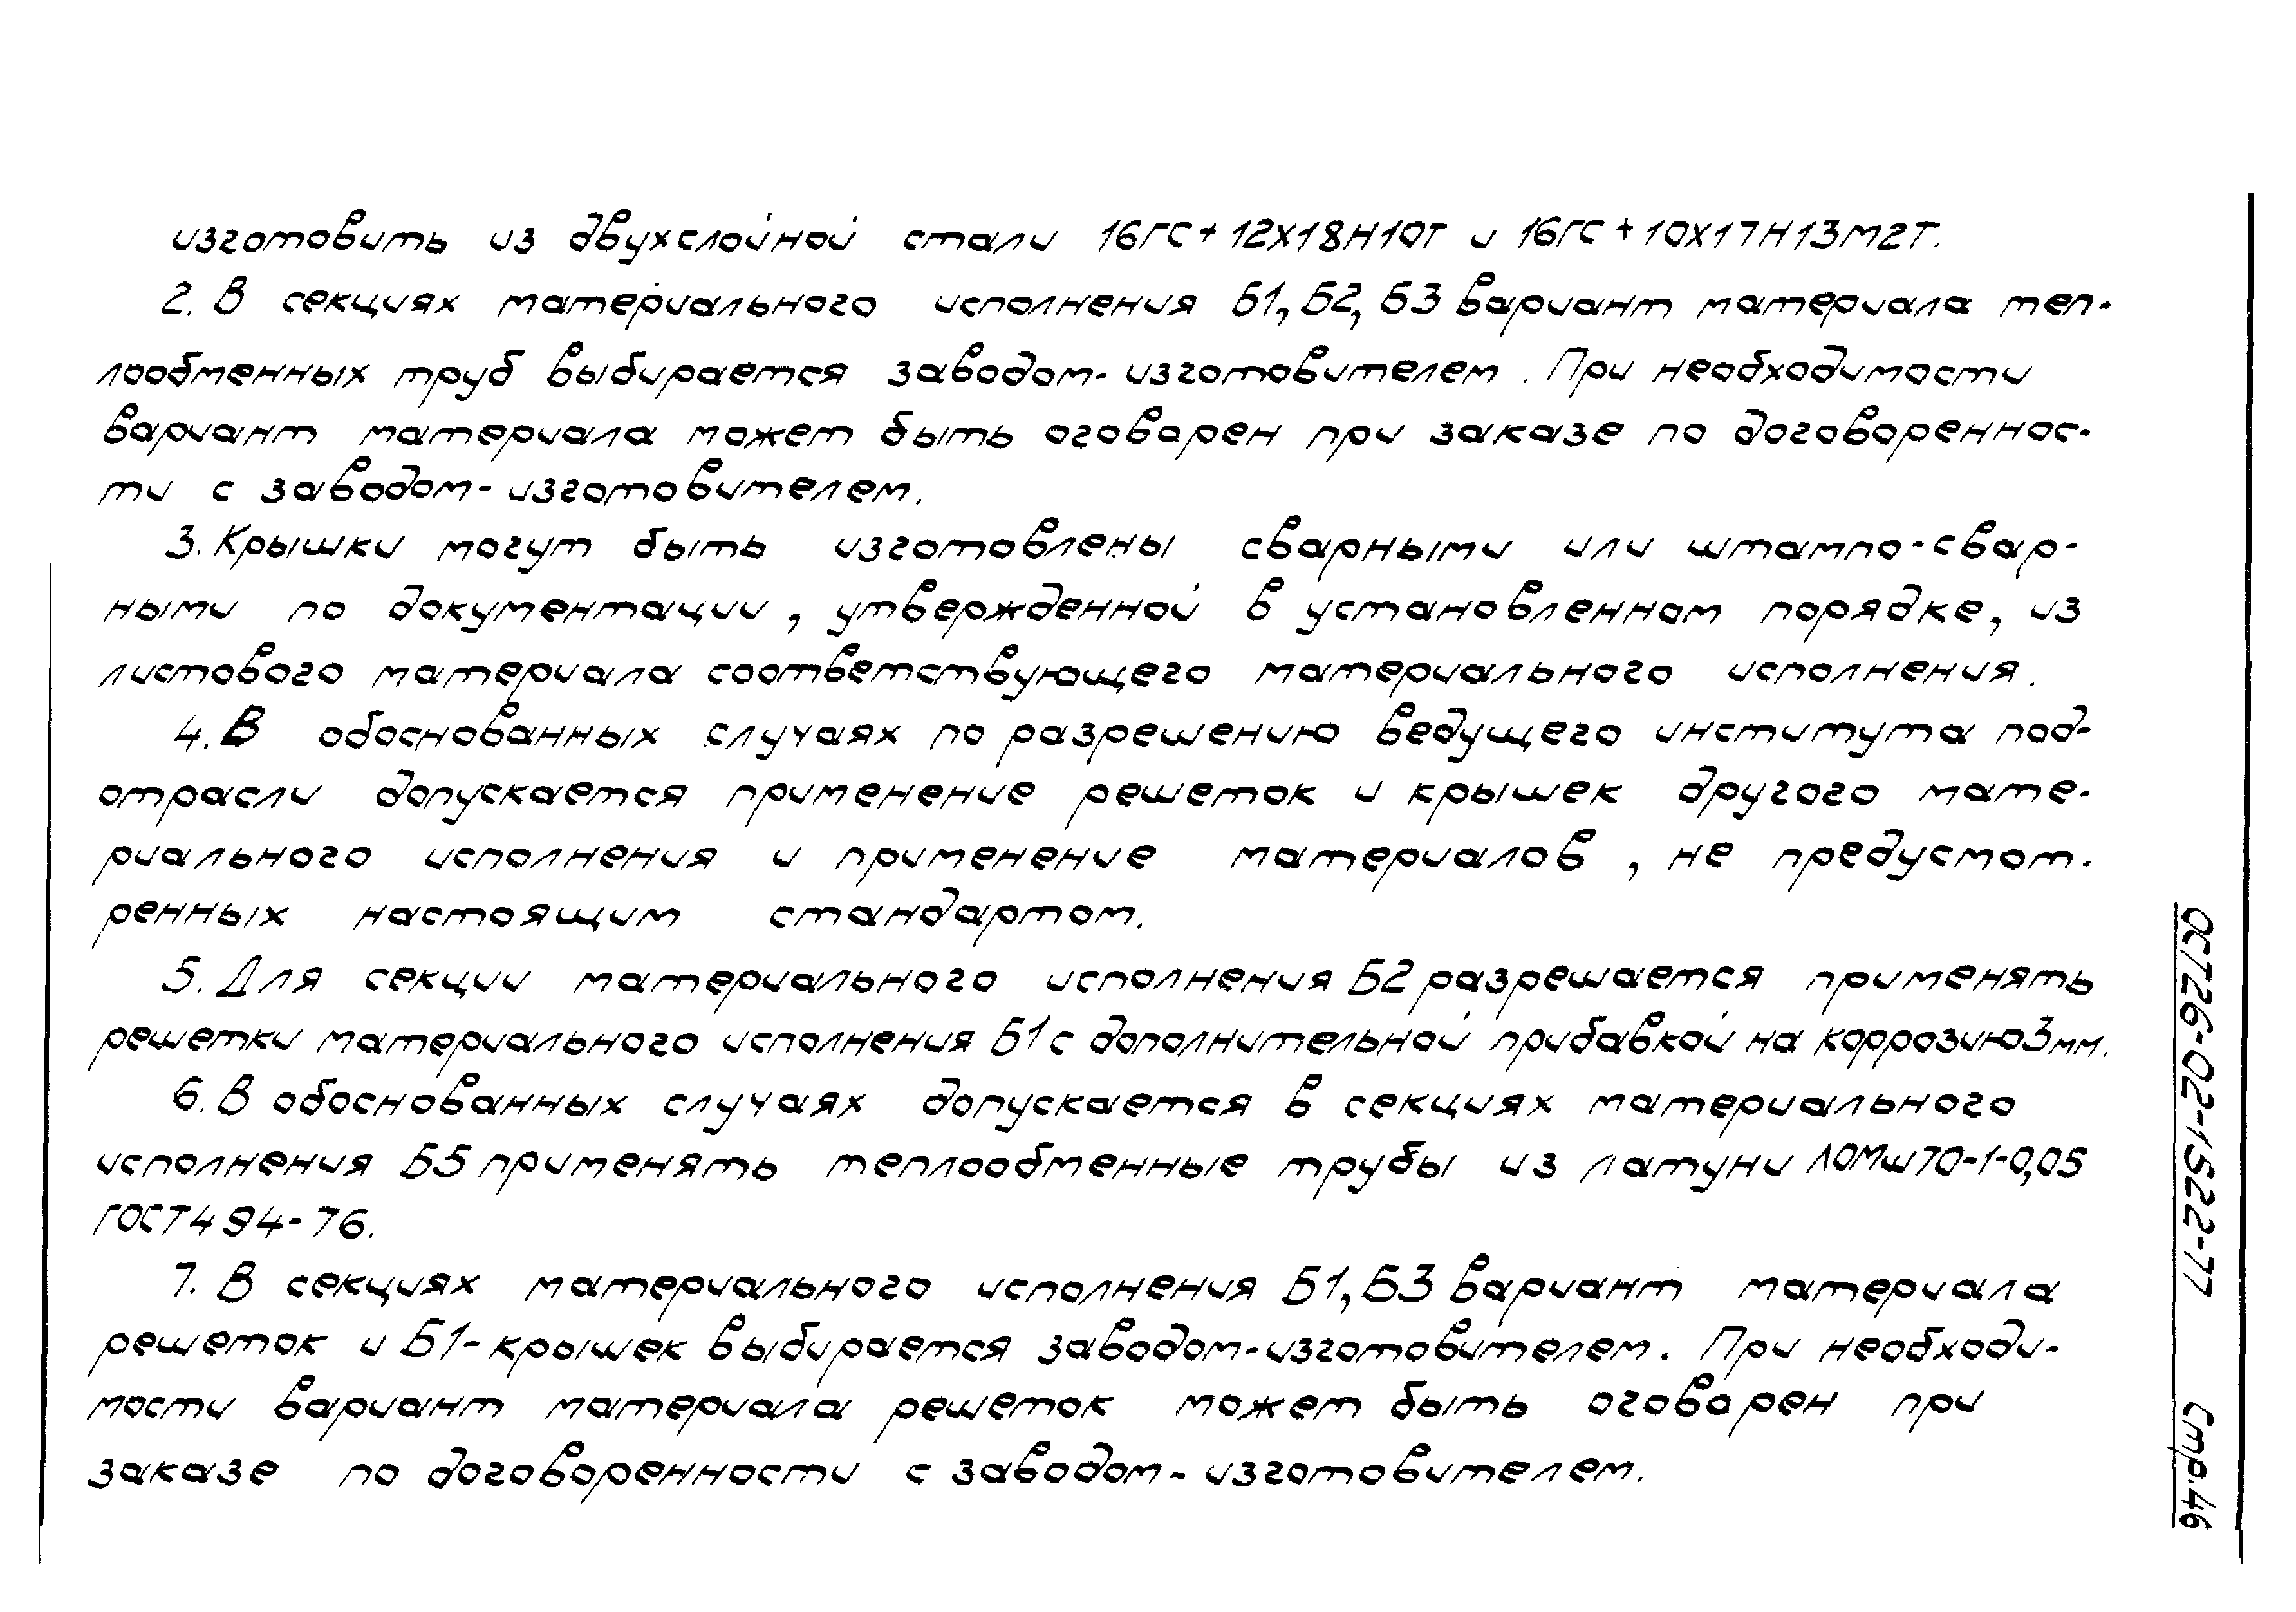 изготовить из двухслойной стали 16ГС+12Х18Н10Т и 16ГС+10Х17Н13М2Т.
2. В секциях материального исполнения Б1, Б2, Б3 вариант материала теп-
лообменных труб выбирается заводом-изготовителем. При необходимости
вариант материала может быть оговорен при заказе по договореннос-
ти с заводом-изготовителем.
3. Крышки могут быть изготовлены сварными или штампо-свар-
ными по документации, утвержденной в установленном порядке, из
листового материала соответствующего материального исполнения.
4. В обоснованных случаях по разрешению ведущего института под-
отрасли допускается применение решеток и крышек другого мате-
риального исполнения и применение материалов, не предусмот-
ренных настоящим стандартом.
5. Для секции материального исполнения Б2 разрешается применять
решетки материального исполнения Б1 с дополнительной прибавкой на коррозию 3 мм.
6. В обоснованных случаях допускается в секциях материального
исполнения Б5 применять теплообменные трубы из латуни ЛОМш70-1-0,05
ГОСТ 494-76.
7. В секциях материального исполнения Б1, Б3 вариант материала
решеток и Б1-крышек выбирается заводом-изготовителем. При необходи-
мости вариант материала решеток может быть оговорен при
заказе по договоренности с заводом-изготовителем.
ОСТ26-02-1522-77 Стр.46